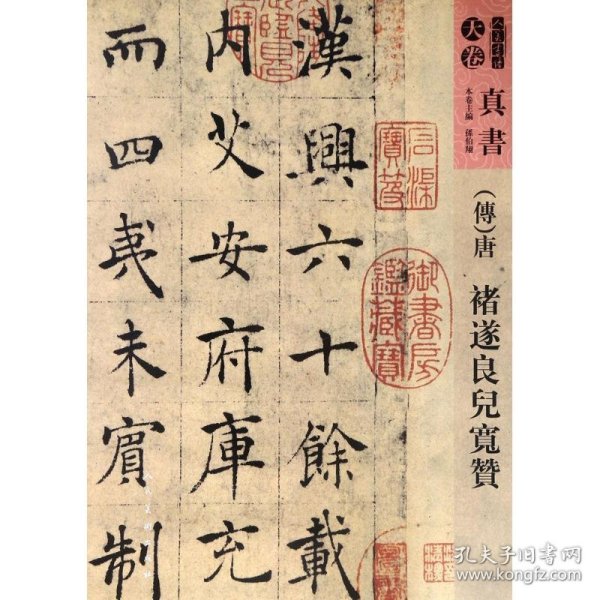 人美書譜
天卷
真書
本卷主編 孫伯翔
(傳)唐 褚遂良兒寬贊
石渠
寶笈
御書房
鑑藏寶
漢興六十餘載
内艾安府庫充
而四夷未賓制
孔夫子旧书网
www.kongfz.com